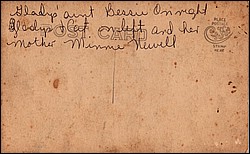 Gladys aunt Bessie Enright
Gladys & Cat on left and her
mother Minnie Newell
POST CARD
PLACE
POSTAGE
STAMP
HERE